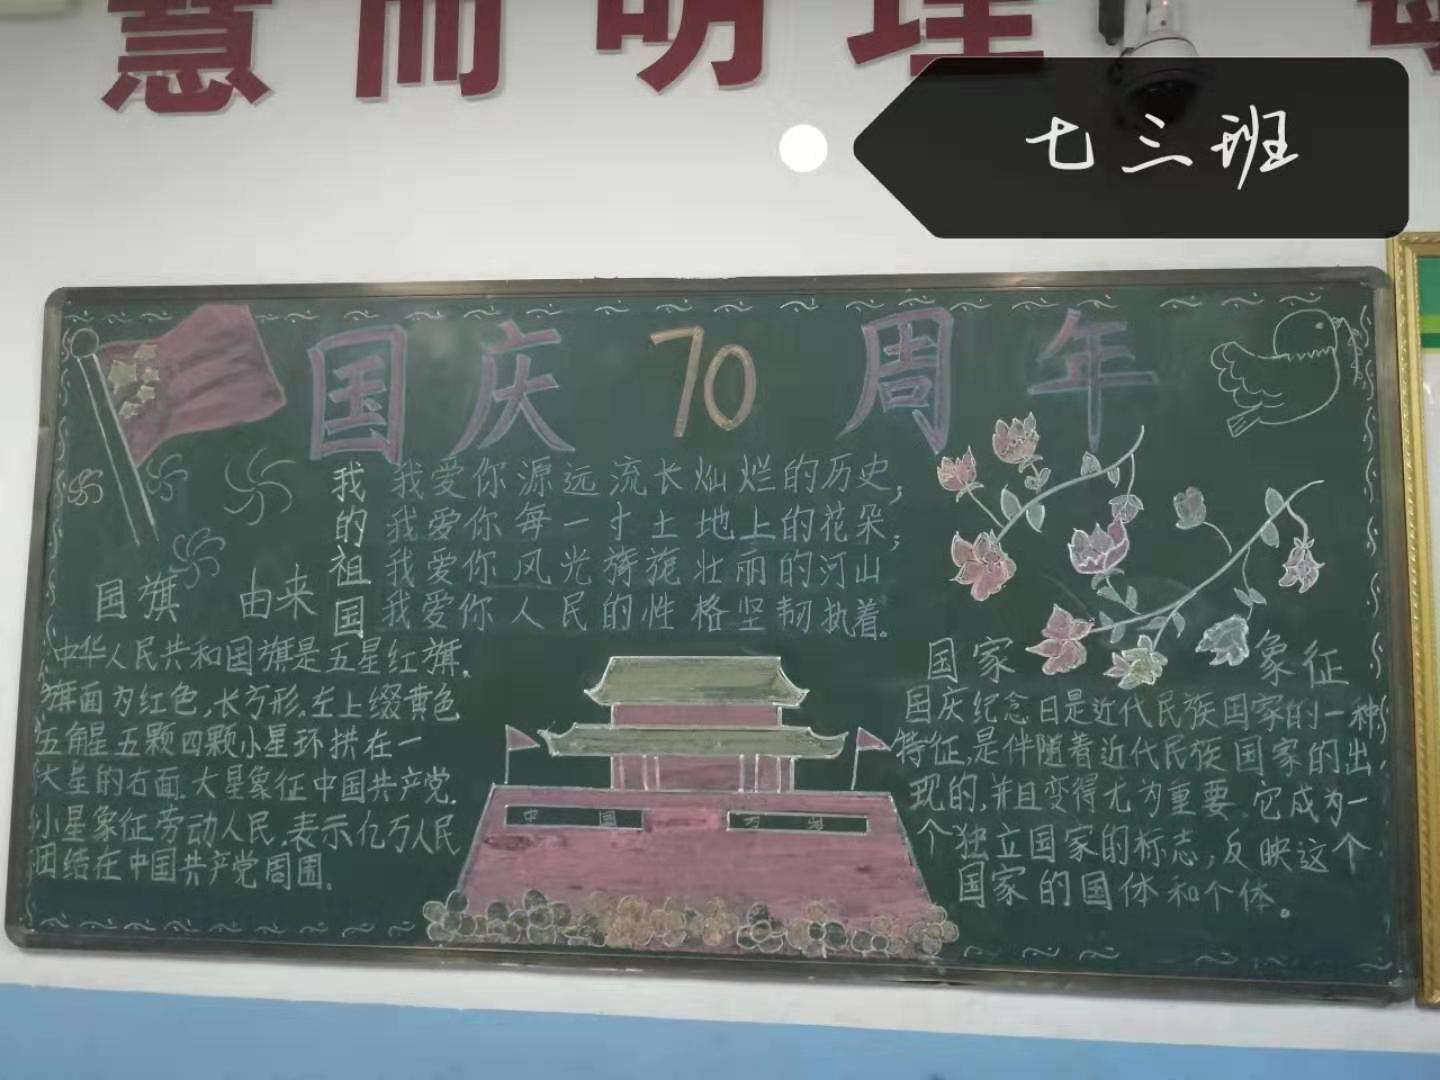 慧而明理
七三班
国庆70周年
我的祖国
我爱你源远流长灿烂的历史,
我爱你每一寸土地上的花朵,
我爱你风光旖旎壮丽的河山
我爱你人民的性格坚韧执着。
国旗 由来
中华人民共和国旗是五星红旗.
旗面为红色,长方形.左上缀黄色
五角星五颗四颗小星环拱在一
大星的右面.大星象征中国共产党.
小星象征劳动人民.表示亿万人民
团结在中国共产党周围.
中国
万岁
国家 象征
国庆纪念日是近代民族国家的一种
特征,是伴随着近代民族国家的出
现的,并且变得尤为重要.它成为一
个独立国家的标志,反映这个
国家的国体和个体。